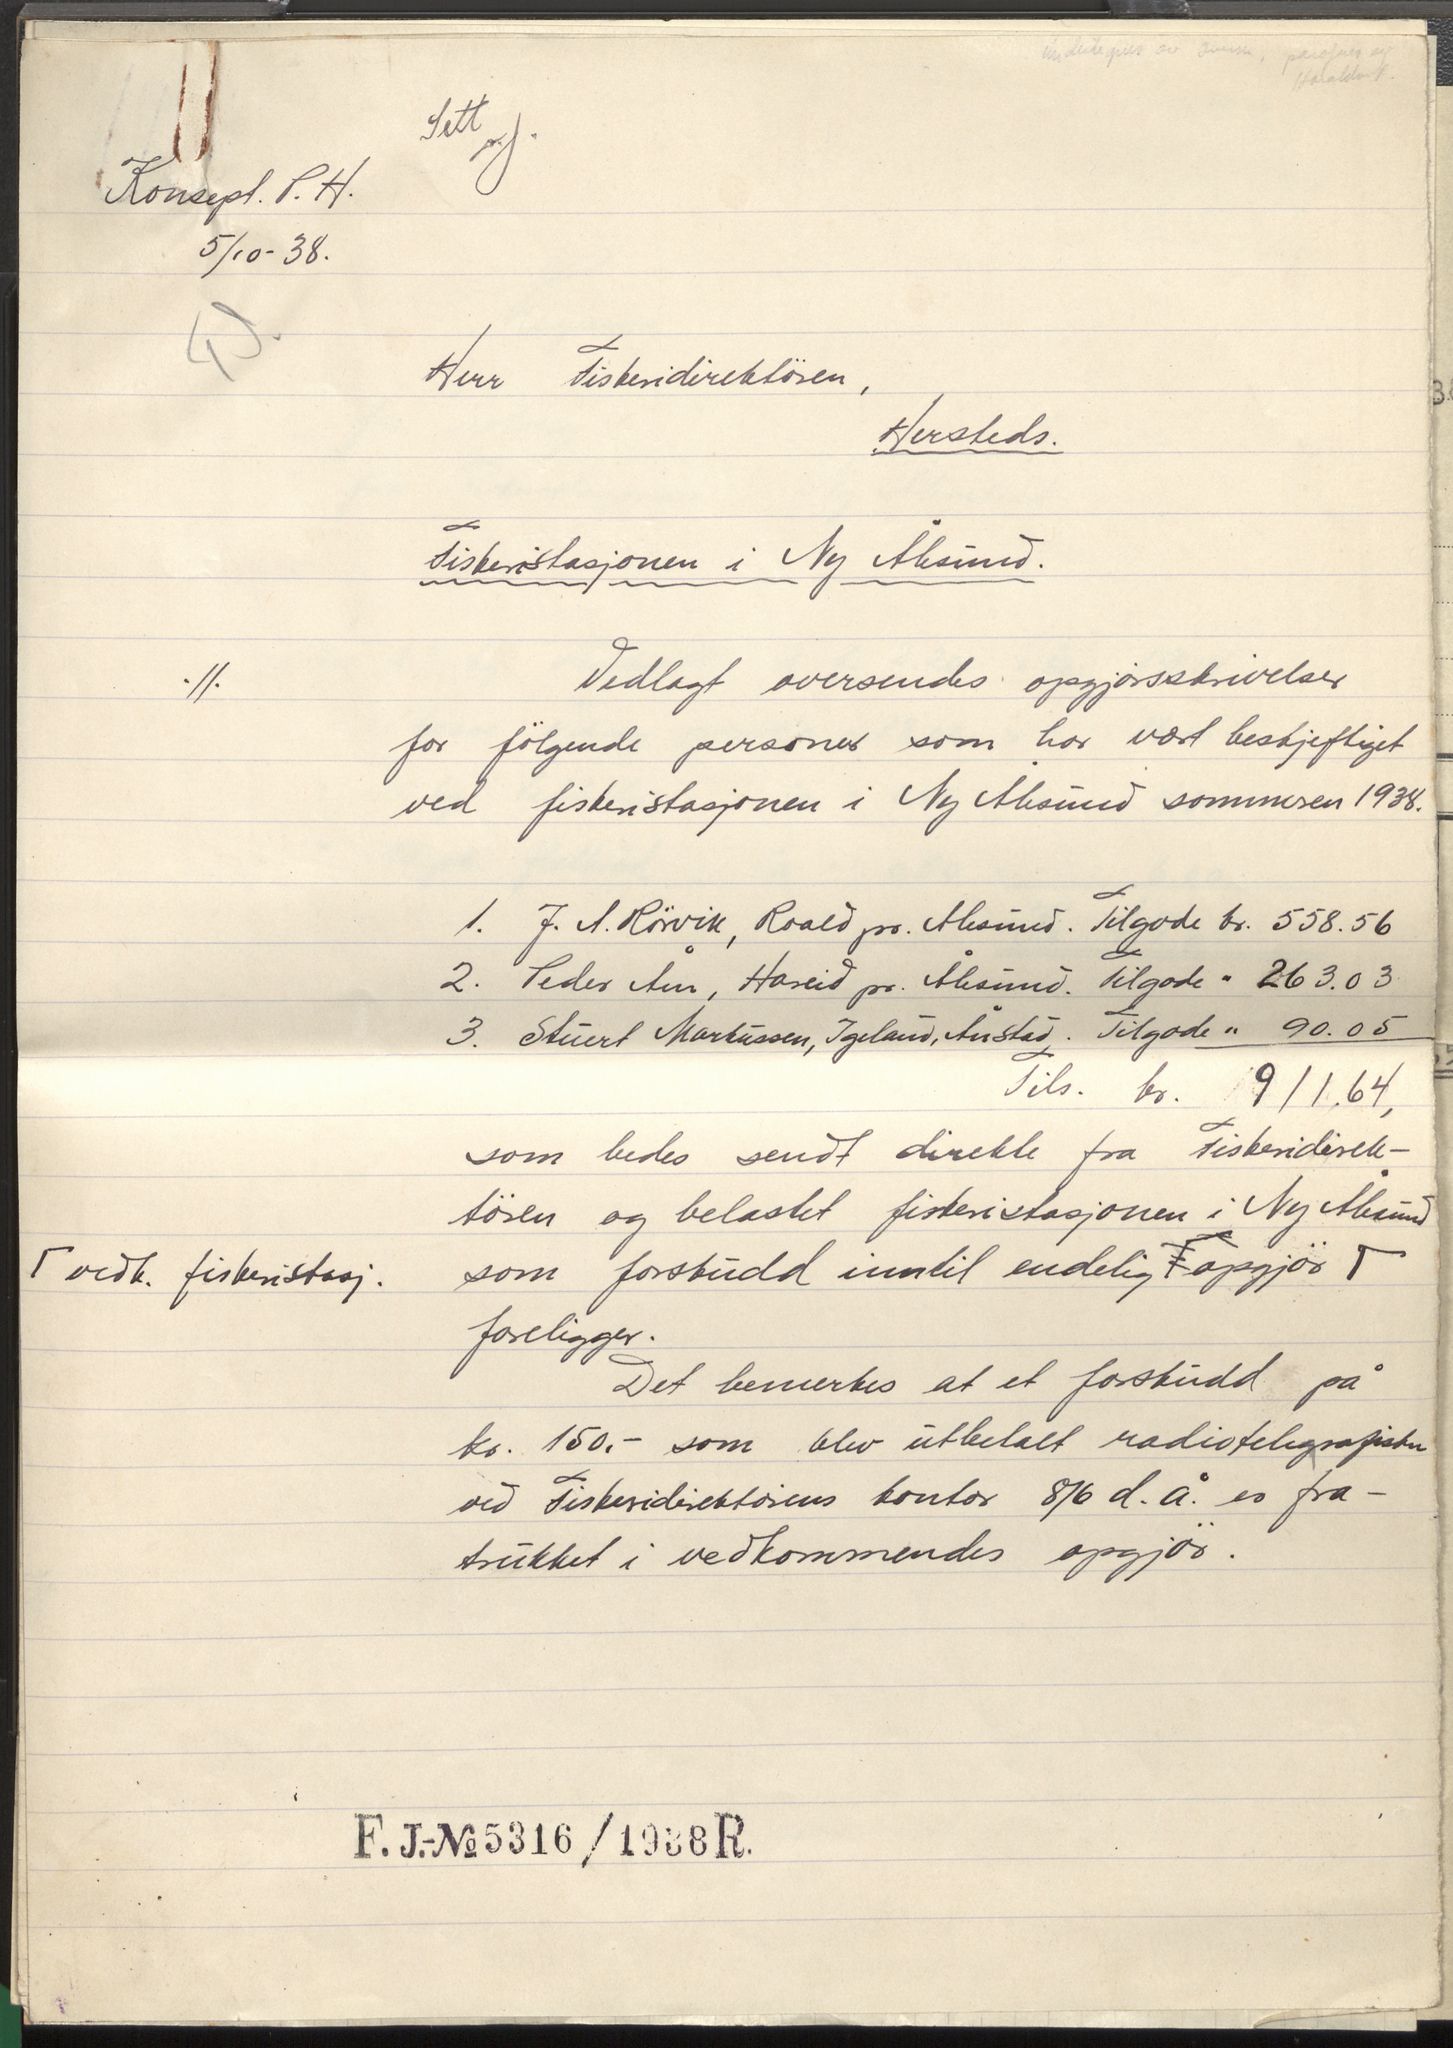 Sett
Konsept. P. H.
5/10-38.
Herr Fiskeridirektören,
Hersteds.
Fiskeristasjonen i Ny Ålesund.
.//. Vedlagt oversendes opgjörsskrivelser
for fölgende personer som har vært beskjeftiget
ved fiskeristasjonen i Ny Ålesund sommeren 1938.
1. J. A. Rörvik, Roald pr. Ålesund. Tilgode kr. 558.56
2. Peder Åm, Hareid pr. Ålesund. Tilgode " 263.03
3. Stuert Markussen, Igeland, Ånstad. Tilgode " 90.05
Tils. kr. 911.64,
som bedes sendt direkte fra Fiskeridirek-
tören og belastet fiskeristasjonen i Ny Ålesund
som forskudd inntil endelig opgjör Γ
Γ vedk. fiskeristasj.
foreligger.
Det bemerkes at et forskudd på
kr. 150.- som blev utbetalt radiotelegrafisten
ved Fiskeridirektörens kontor 8/6 d. å. er fra-
trukket i vedkommendes opgjör.
F. J.-№ 5316 / 1938 R.